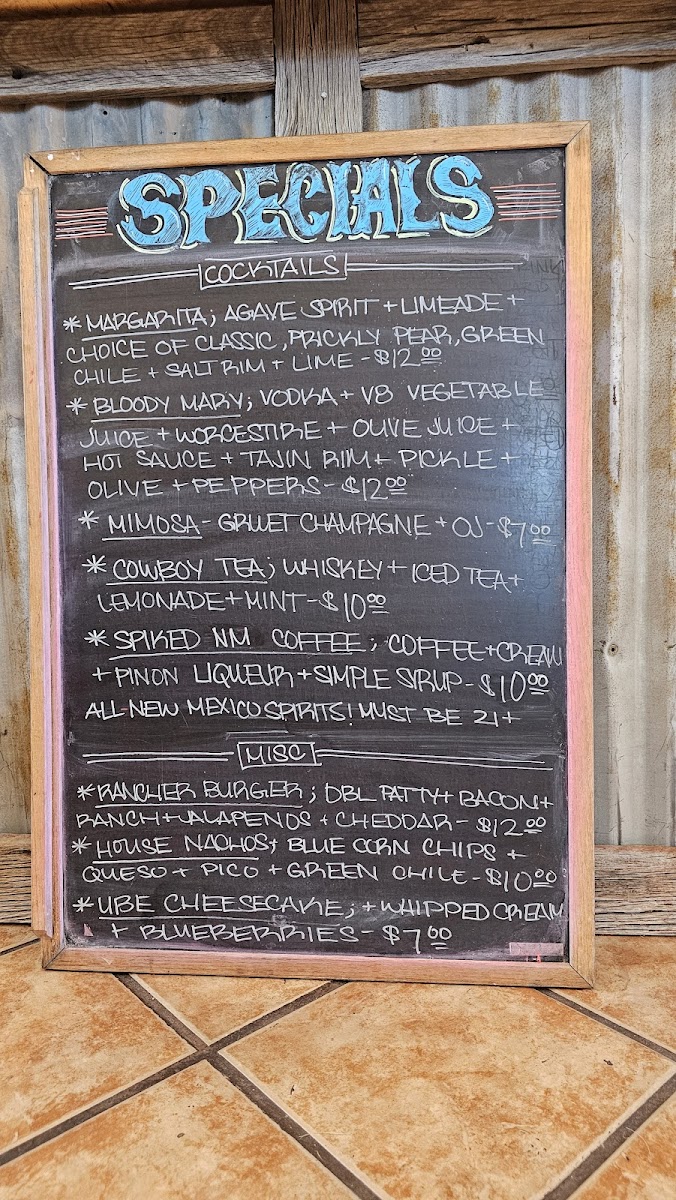 SPECIALS
COCKTAILS
* MARGARITA; AGAVE SPIRIT + LIMEADE +
CHOICE OF CLASSIC, PRICKLY PEAR, GREEN
CHILE + SALT RIM + LIME - $12.00
* BLOODY MARY; VODKA + V8 VEGETABLE
JUICE + WORCESTIRE + OLIVE JUICE +
HOT SAUCE + TAJIN RIM + PICKLE +
OLIVE + PEPPERS - $12.00
* MIMOSA - GRUET CHAMPAGNE + OJ - $7.00
* COWBOY TEA; WHISKEY + ICED TEA +
LEMONADE + MINT - $10.00
* SPIKED NM COFFEE; COFFEE + CREAM
+ PINON LIQUEUR + SIMPLE SYRUP - $10.00
ALL-NEW MEXICO SPIRITS! MUST BE 21+
MISC
* RANCHER BURGER; DBL PATTY + BACON +
RANCH + JALAPENOS + CHEDDAR - $12.00
* HOUSE NACHOS; BLUE CORN CHIPS +
QUESO + PICO + GREEN CHILE - $10.00
* UBE CHEESECAKE; + WHIPPED CREAM
+ BLUEBERRIES - $7.00